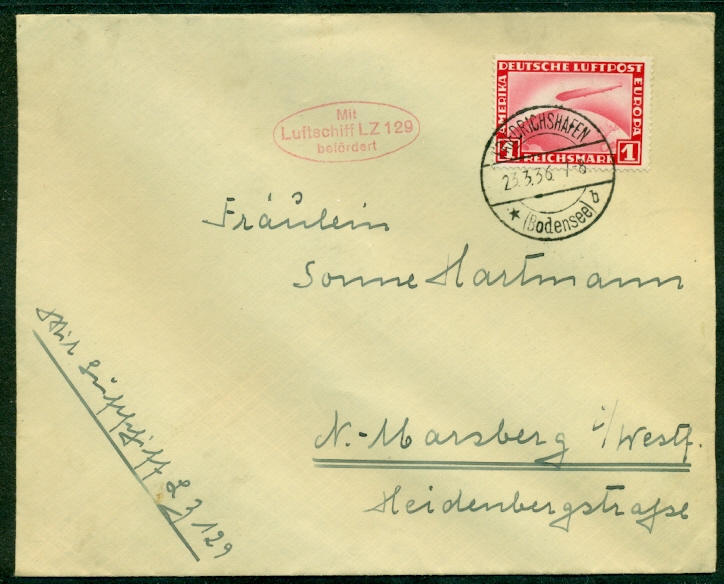 DEUTSCHE LUFTPOST
AMERIKA
EUROPA
1 REICHSMARK 1
FRIEDRICHSHAFEN
23.3.36. 7-8
(Bodensee) b
Mit
Luftschiff LZ 129
befördert
Fräulein
Sonne Hartmann
N.-Marsberg i/Westf.
Heidenbergstraße
Mit Luftschiff L Z 129